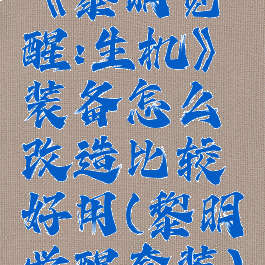 《黎明觉
醒:生机》
装备怎么
改造比较
好用(黎明
觉醒套装)